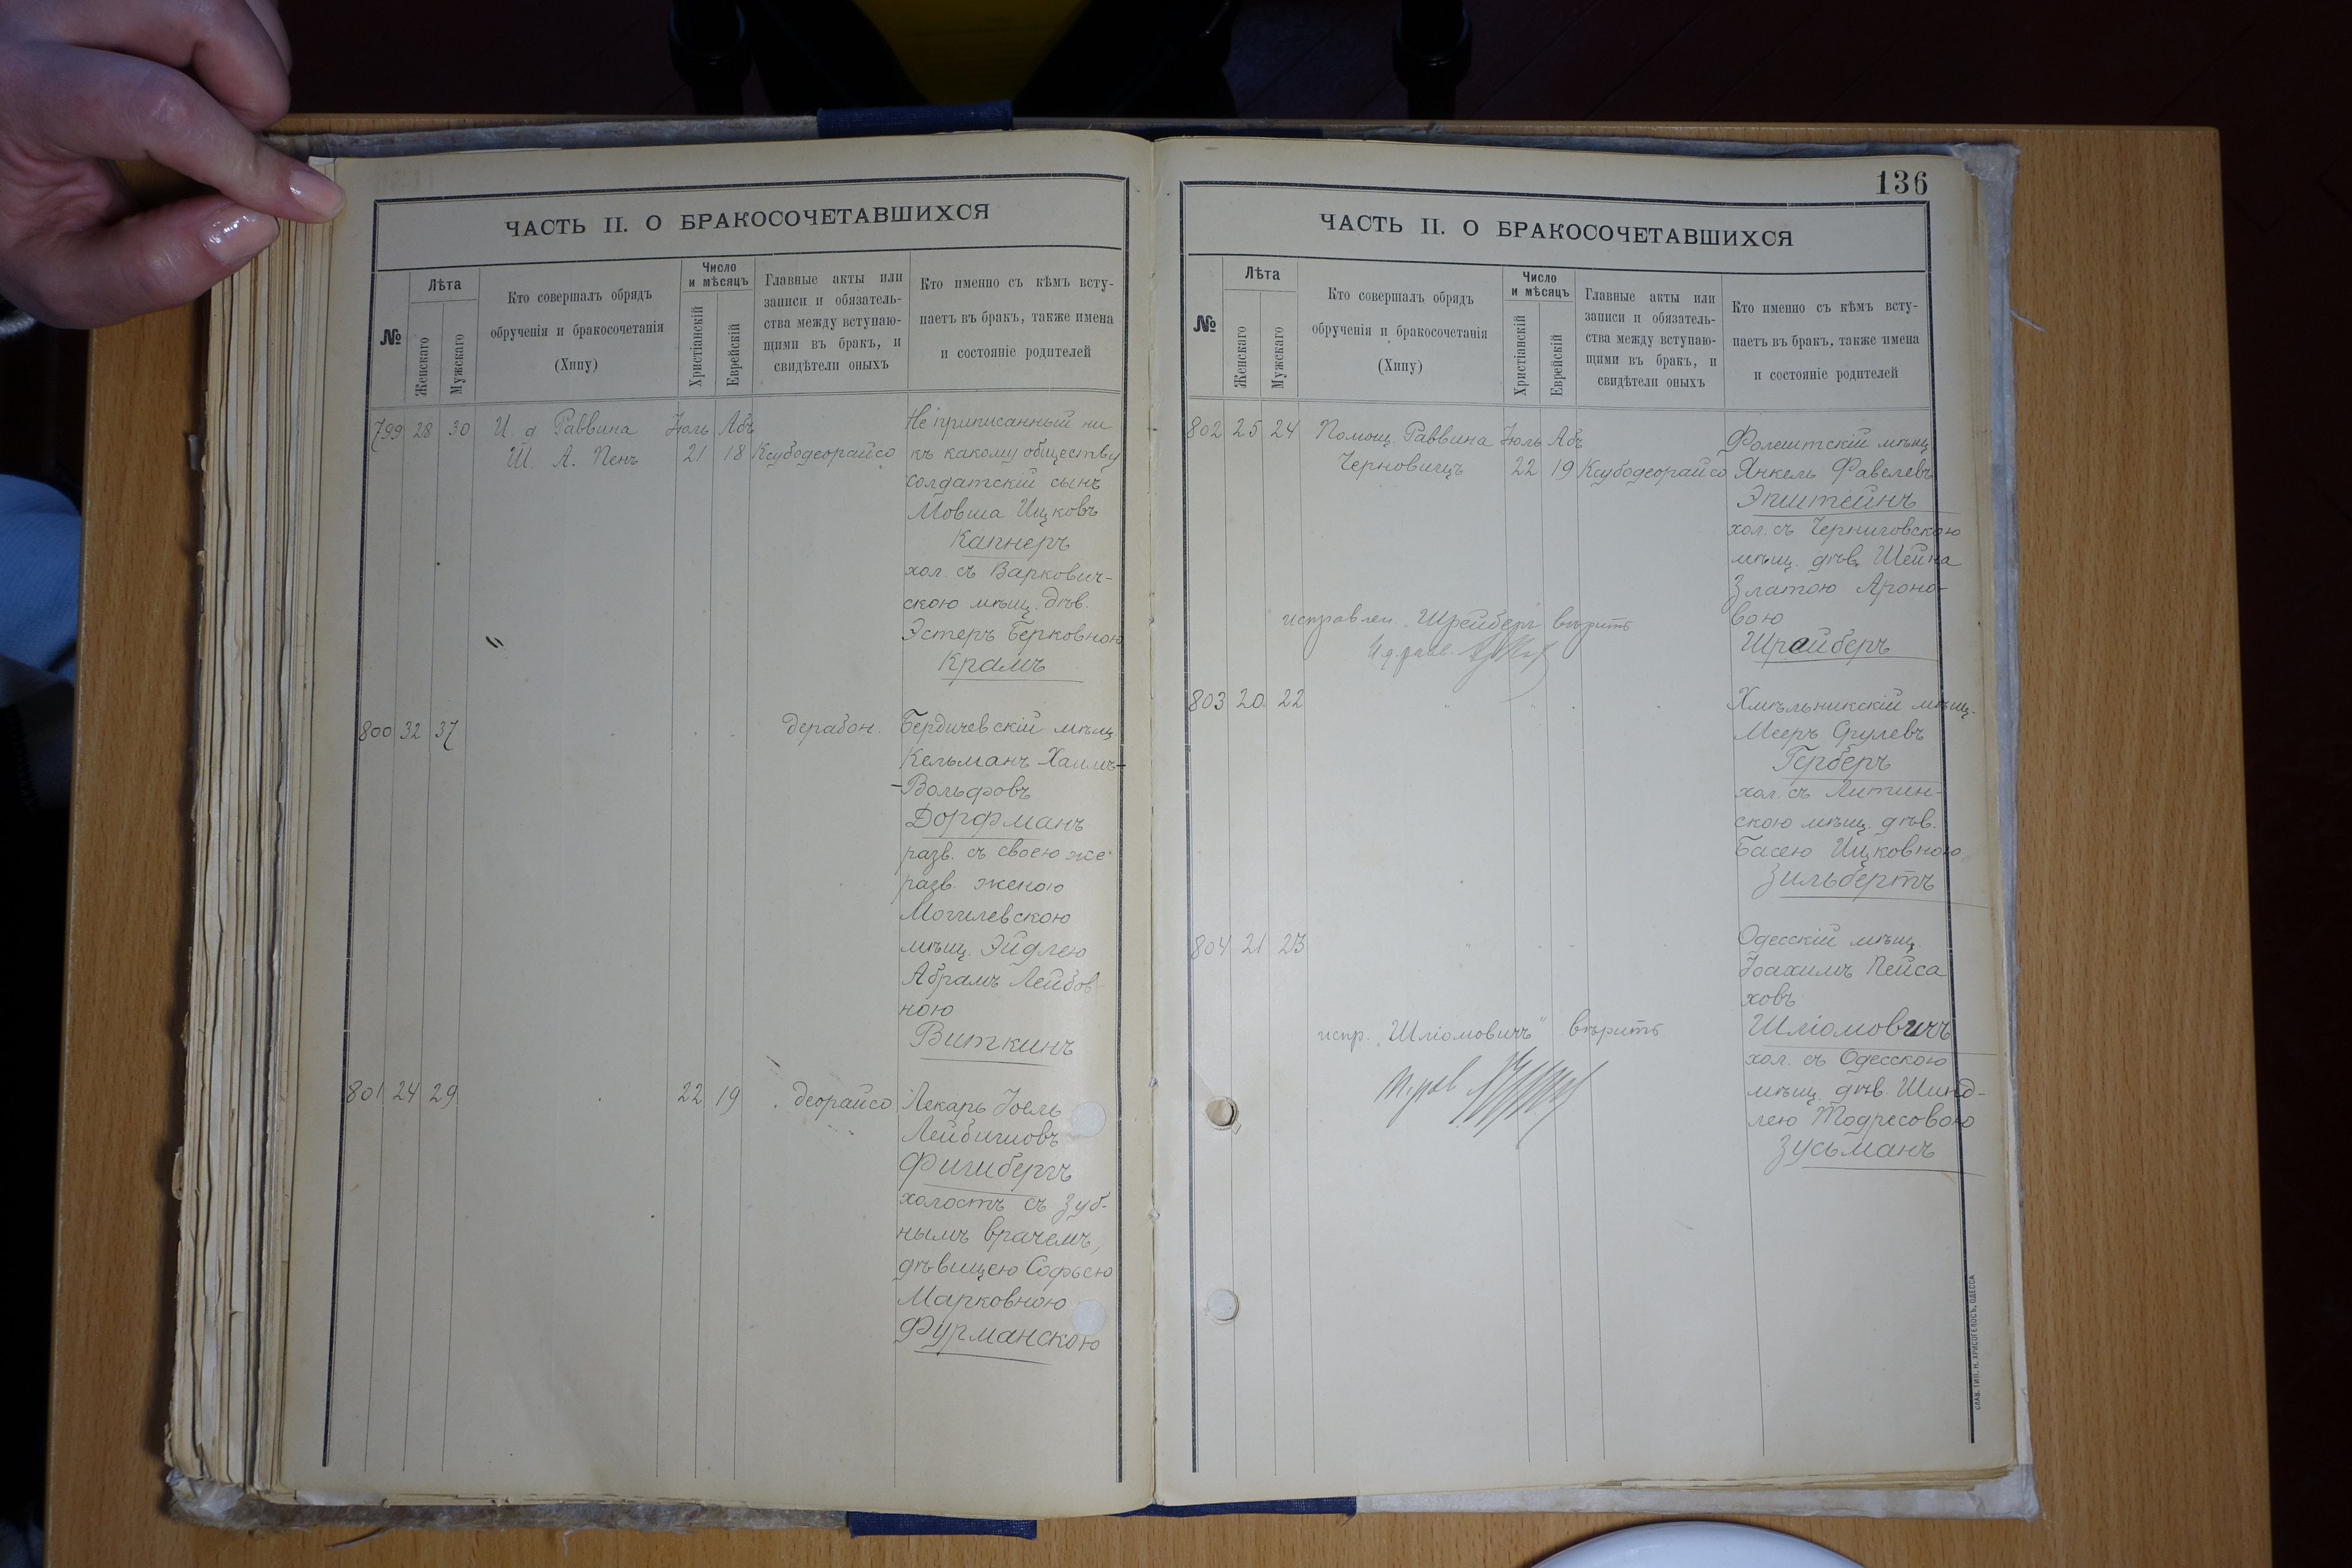 ЧАСТЬ II. О БРАКОСОЧЕТАВШИХСЯ
№
Лѣта
Женскаго
Мужскаго
Кто совершалъ обрядъ
обрученія и бракосочетанія
(Хипу)
Число
и мѣсяцъ
Христіанскій
Еврейскій
Главные акты или
записи и обязатель-
ства между вступаю-
щими въ бракъ, и
свидѣтели оныхъ
Кто именно съ кѣмъ всту-
паетъ въ бракъ, также имена
и состояніе родителей
799 28 30 И. д Раввина Іюль Абъ Не приписанный ни
Ш. А. Пенъ 21 18 Ксубодеорайсо къ какому обществу
солдатскій сынъ
Мовша Ицковъ
Капнеръ
хол. съ Варкович-
скою мѣщ. дѣв.
Эстеръ Берковною
Крамъ
800 32 37 дерабон. Бердичевскій мѣщ
Кельманъ-Хаимъ-
-Вольфовъ
Дорфманъ
разв. съ своею же
разв. женою
Могилевскою
мѣщ. Эйдлею
Абрамъ Лейбов
ною
Виткинъ
801 24 29 22 19 деорайсо Лекарь Іоель
Лейбишовъ
Фишбергъ
холостъ съ зуб-
нымъ врачемъ,
дѣвицею Софьею
Марковною
Фурманскою
136
ЧАСТЬ II. О БРАКОСОЧЕТАВШИХСЯ
№
Лѣта
Женскаго
Мужскаго
Кто совершалъ обрядъ
обрученія и бракосочетанія
(Хипу)
Число
и мѣсяцъ
Христіанскій
Еврейскій
Главные акты или
записи и обязатель-
ства между вступаю-
щими въ бракъ, и
свидѣтели оныхъ
Кто именно съ кѣмъ всту-
паетъ въ бракъ, также имена
и состояніе родителей
802 25 24 Помощ. Раввина Іюль Абъ Фолештскій мѣщ
Черновицъ 22 19 Ксубодеорайсо Янкель Фавелевъ
Эпштейнъ
хол. съ Черниговскою
мѣщ. дѣв. Шейна
Златою Ароно-
исправлен. "Шрейберъ" вѣрить вою
И. д. равв. Шрейберъ
803 20 22 Хмѣльникскій мѣщ.
Мееръ Срулевъ
Герберъ
хол. съ Литин-
скою мѣщ. дѣв.
Басею Ицковною
Зильбертъ
804 21 23 Одесскій мѣщ.
Іоахимъ Пейса
ховъ
испр. "Шліомовичъ" вѣрить Шліомовичъ
хол. съ Одесскою
мѣщ. дѣв. Шинд-
лею Тодресовою
Зусьманъ
СЛАВ. ТИП. Н. ХРИСОГЕЛОСЪ, ОДЕССА